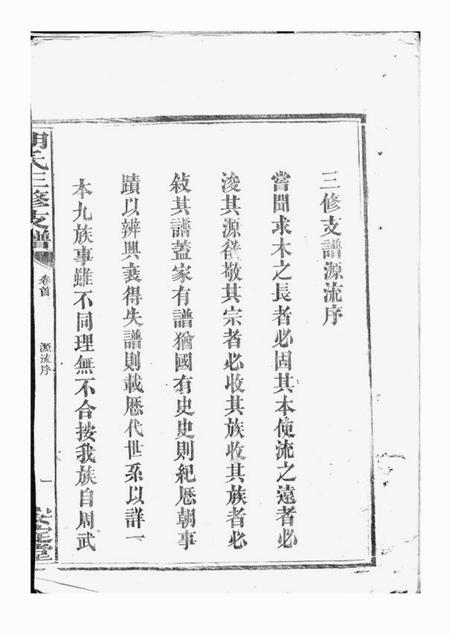 三修支譜源流序
嘗聞求木之長者必固其本使流之遠者必
浚其源從敬其宗者必收其族收其族者必
敍其譜蓋家有譜猶國有史史則紀歷朝事
蹟以辨興衰得失譜則載歷代世系以詳一
本九族事雖不同理無不合按我族自周武
胡氏三修支譜
卷首
源流序
一
安定堂